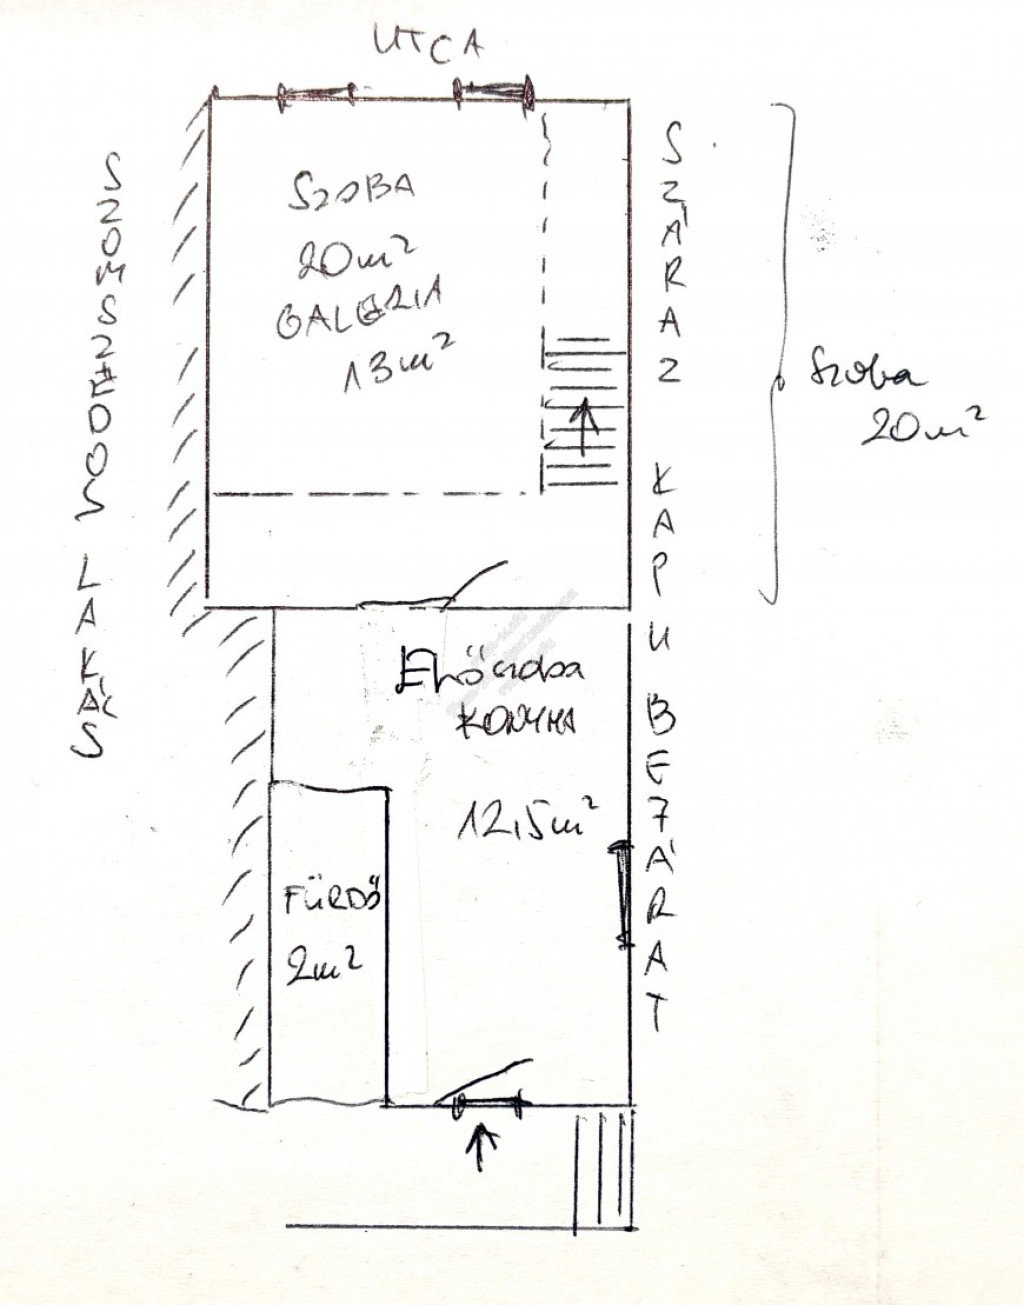 UTCA
SZOMSZÉDOS LAKÁS
SZOBA
20m²
GALÉRIA
13m²
SZÁRAZ KAPU BEJÁRAT
Szoba
20m²
Előszoba
KONYHA
12,5m²
FÜRDŐ
2m²